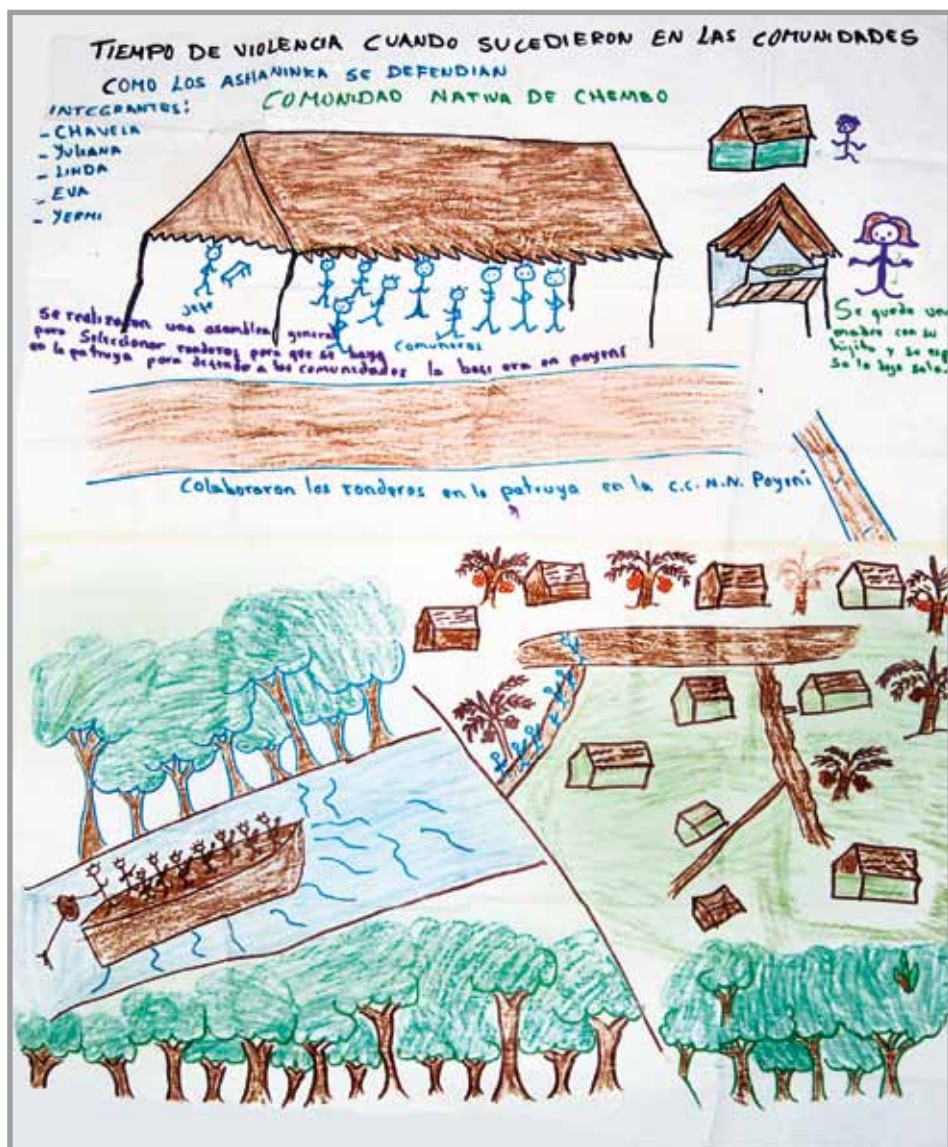 TIEMPO DE VIOLENCIA CUANDO SUCEDIERON EN LAS COMUNIDADES
COMO LOS ASHANINKA SE DEFENDIAN
COMUNIDAD NATIVA DE CHEMBO
INTEGRANTES:
- CHAVELA
- YULIANA
- LINDA
- EVA
- YERMI
Jefe
Comuneros
Se realizaron una asamblea general
para Seleccionar ronderos para que se haga
en la patruya para a los comunidades la base era en poyeni
Se quedo una
madre con su
hijito y se
Se lo dejo solo.
Colaboraron los ronderos en la patruya en la C.C.N.N. Poyeni